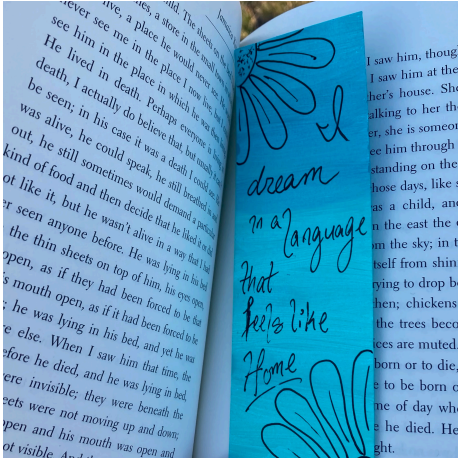 never see me in the place I now live, but
see him in the place in which he was
He lived in death. Perhaps everyone is
death, I actually do believe that, but
be seen; in his case it was a death I
was alive, he could speak, he still breathed
out, he still sometimes would demand a particular
kind of food and then decide that he liked it or
not like it, but he wasn't alive in a way that I had
ever seen anyone before. He was lying in his bed
the thin sheets on top of him, his eyes open,
open, as if they had been forced to be that
mouth open, as if it had been forced to be
; he was lying in his bed, and yet he was
else. When I saw him that time, the
before he died, and he was lying in bed,
were invisible; they were beneath the
sheets were not moving up and down;
open and his mouth was open and
not visible. And the
I
dream
in a language
that
feels like
Home
I saw him, though
I saw him at the
house. She
talking to her
er, she is someone
see him through
standing on the
those days, like
was a child, and
in the east the
the sky; in
itself from shin
trying to drop
then; chickens
the trees beco
are muted.
born or to die,
to be born o
me of day wh
he died. He